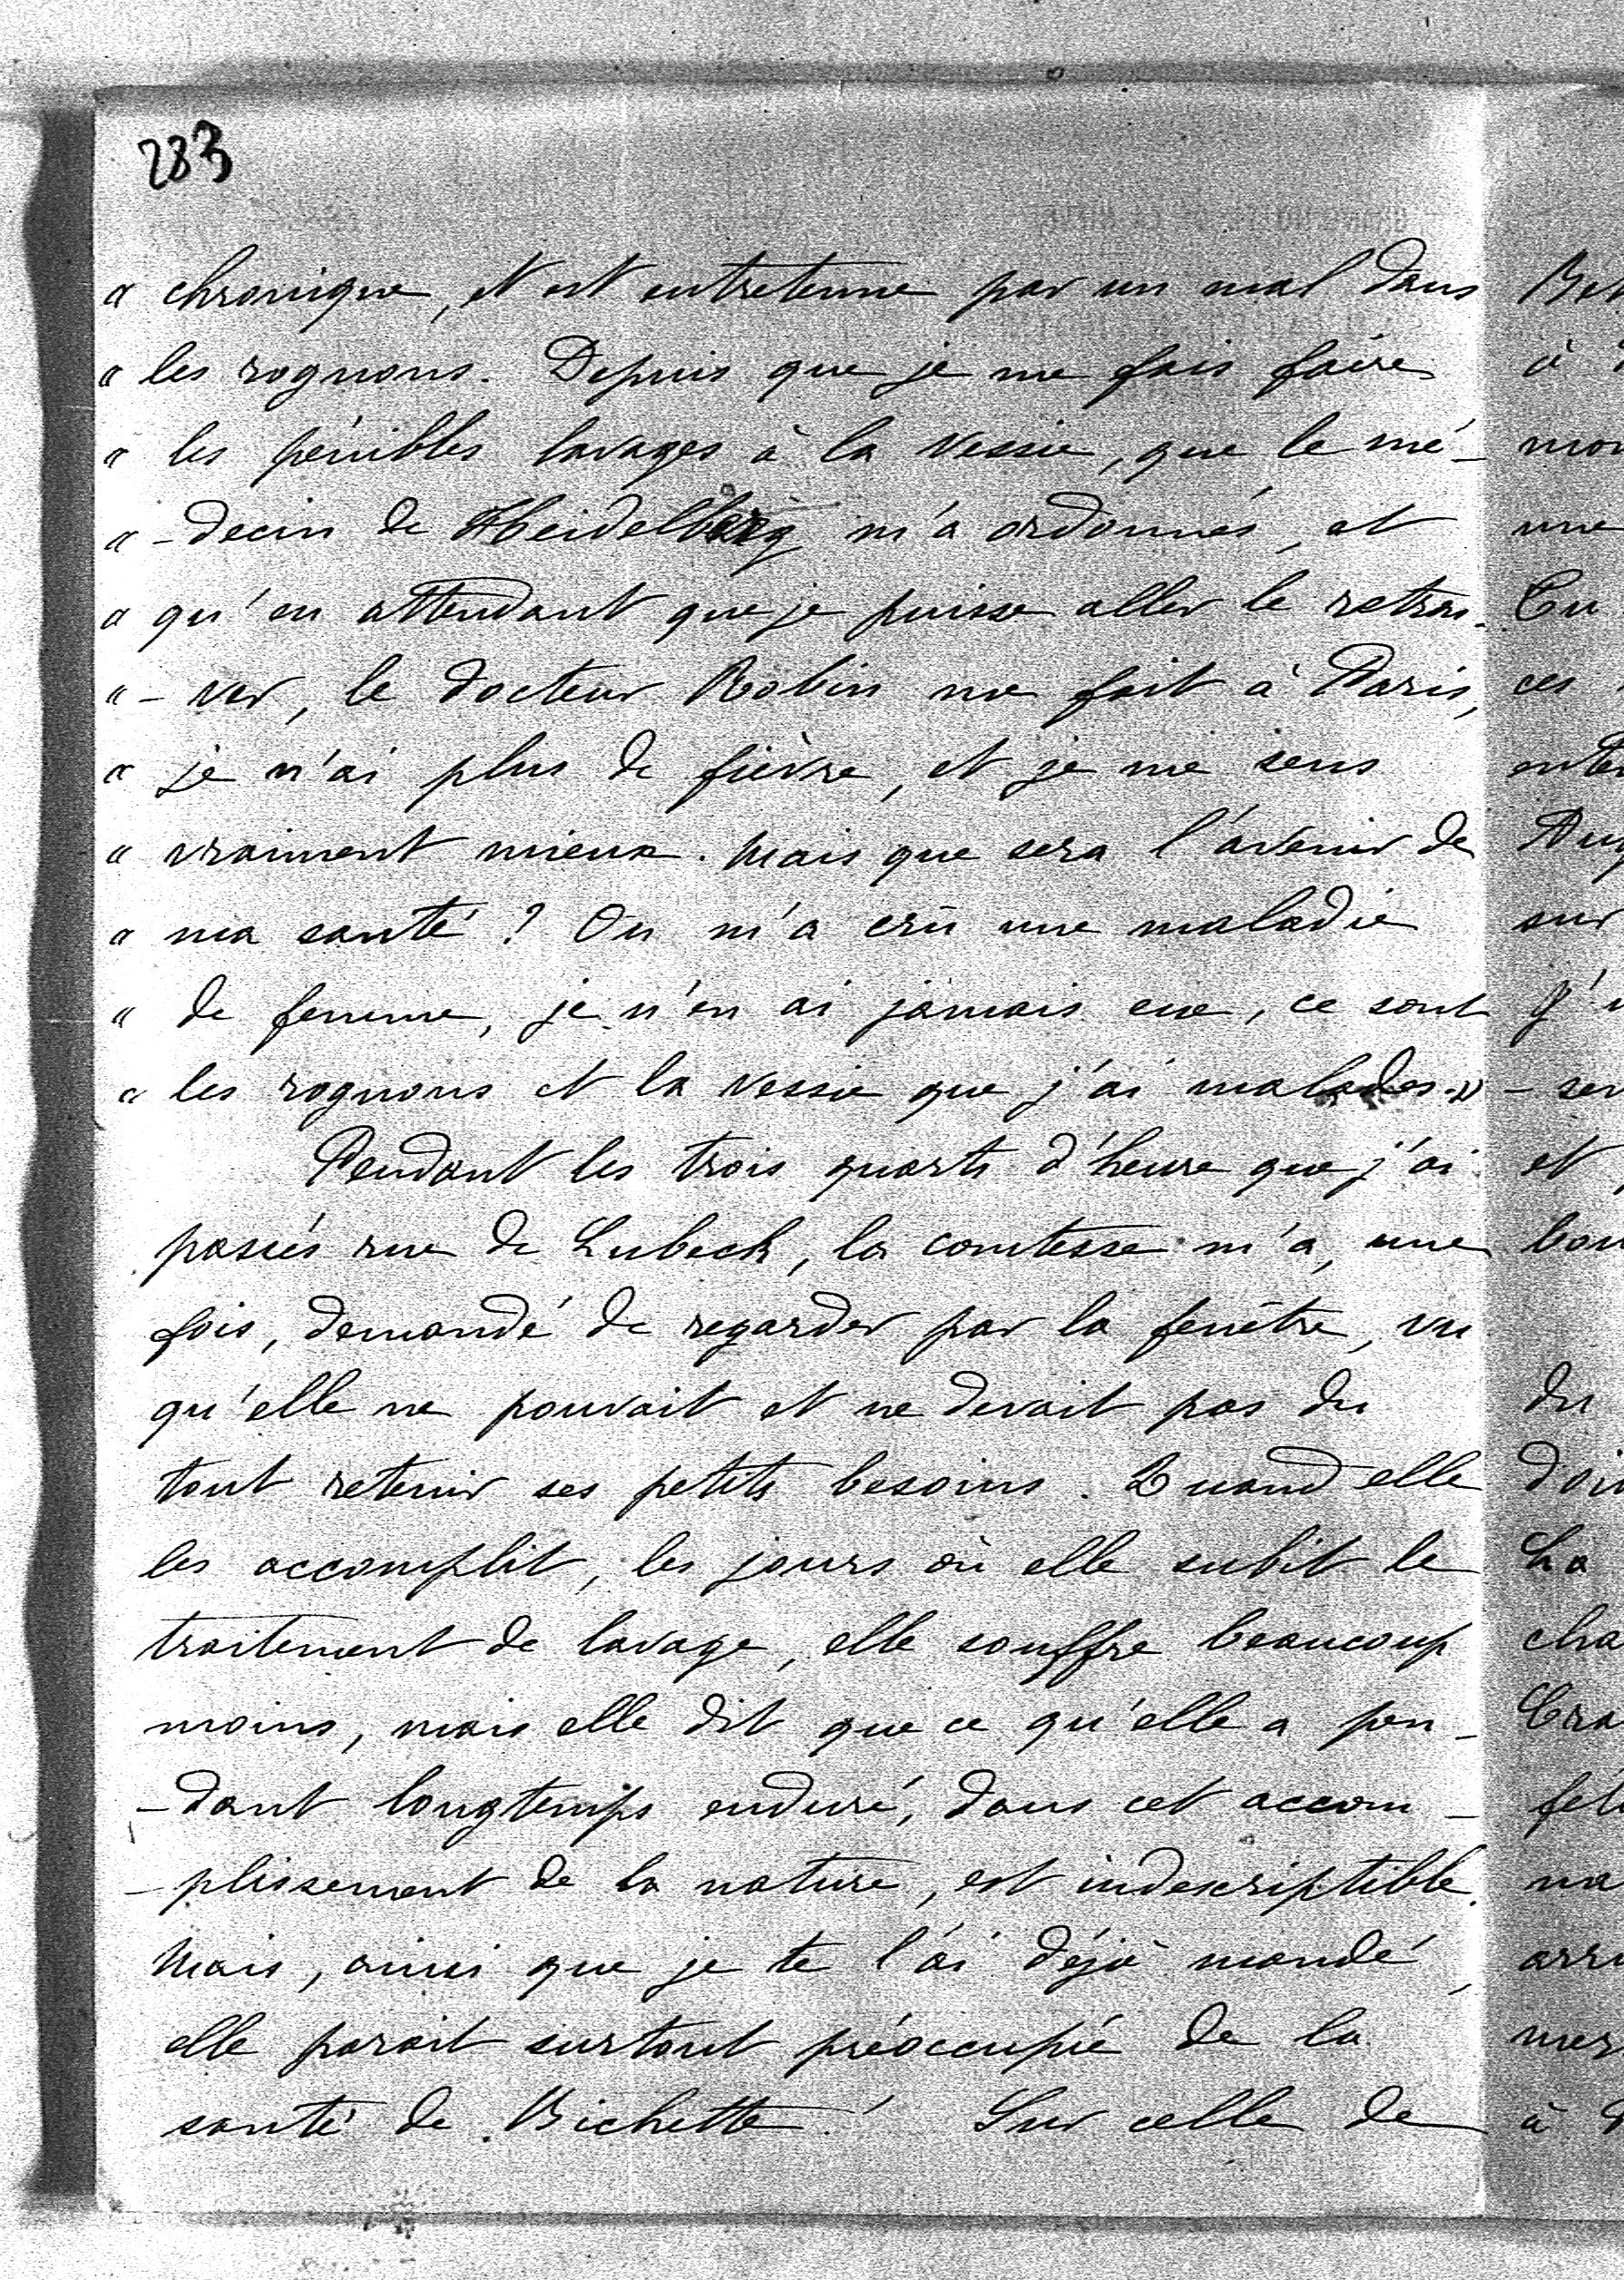 283
« chronique, et est entretenue par un mal dans
« les rognons. Depuis que je me fais faire
« les pénibles lavages à la vessie, que le mé-
« -decin de Heidelberg m'a ordonnés, et
« qu'en attendant que je puisse aller le retrou-
« -ver, le docteur Robin me fait à Paris,
« je n'ai plus de fièvre, et je me sens
« vraiment mieux. Mais que sera l'avenir de
« ma santé ? On m'a crû une maladie
« de femme, je n'en ai jamais eue, ce sont
« les rognons et la vessie que j'ai malades. »
Pendant les trois quarts d'heure que j'ai
passés rue de Lubeck, la comtesse m'a, une
fois, demandé de regarder par la fenêtre, vu
qu'elle ne pouvait et ne devait pas du
tout retenir ses petits besoins. Quand elle
les accomplit, les jours où elle subit le
traitement de lavage, elle souffre beaucoup
moins, mais elle dit que ce qu'elle a pen-
-dant longtemps enduré, dans cet accom-
-plissement de la nature, est indescriptible.
Mais, ainsi que je te l'ai déjà mandé,
elle parait surtout préoccupée de la
santé de Bichette ! Sur celle de